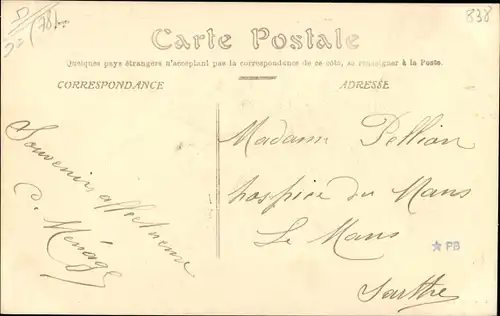 838
Carte Postale
Quelques pays étrangers n'acceptant pas la correspondance de ce côté, se renseigner à la Poste.
CORRESPONDANCE
ADRESSE
Souvenir affectueux
C. Menage
Madame Pellion
hospice du Mans
Le Mans
Sarthe
PB